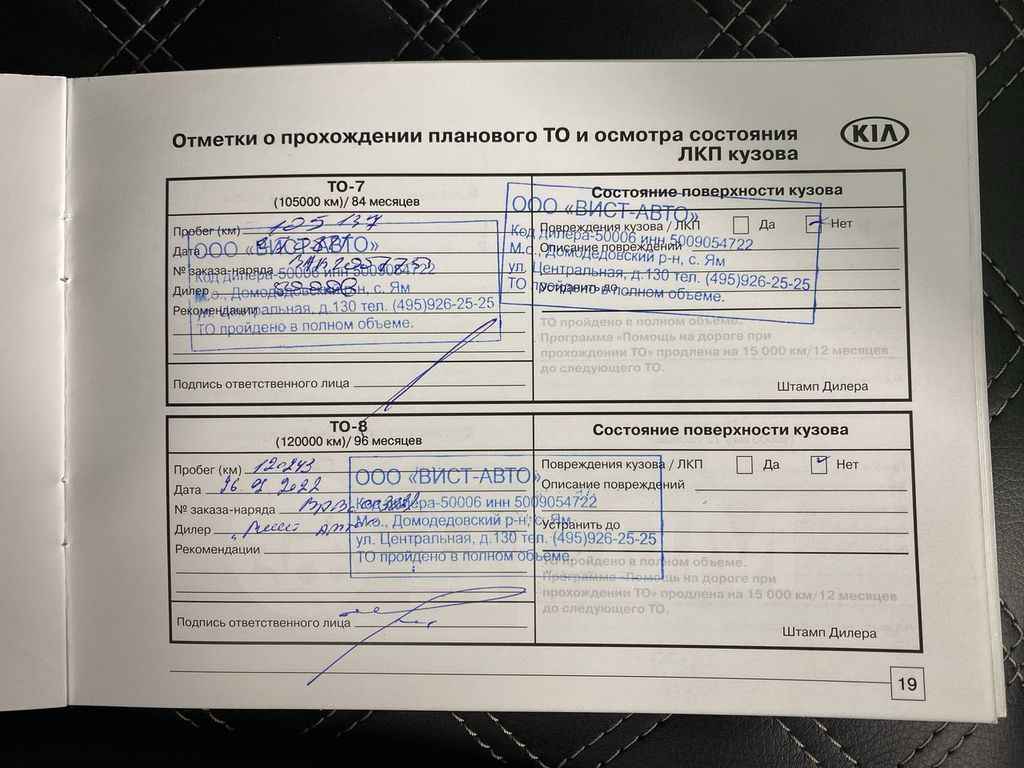 Отметки о прохождении планового ТО и осмотра состояния
ЛКП кузова
KIA
ТО-7
(105000 км)/ 84 месяцев
Пробег (км) 105 137
Дата
№ заказа-наряда
Дилер
Рекомендации
ООО «ВИСТ-АВТО»
Код дилера-50006 инн 5009054722
М.о., Домодедовский р-н, с. Ям
ул. Центральная, д.130 тел. (495)926-25-25
ТО пройдено в полном объеме.
Подпись ответственного лица
Состояние поверхности кузова
Повреждения кузова / ЛКП Да Нет
Описание повреждений
Устранить до
ООО «ВИСТ-АВТО»
Код дилера-50006 инн 5009054722
М.о., Домодедовский р-н, с. Ям
ул. Центральная, д.130 тел. (495)926-25-25
ТО пройдено в полном объеме.
ТО пройдено в полном объеме.
Программа «Помощь на дороге при
прохождении ТО» продлена на 15 000 км/12 месяцев
до следующего ТО.
Штамп Дилера
ТО-8
(120000 км)/ 96 месяцев
Пробег (км) 120243
Дата
№ заказа-наряда
Дилер
Рекомендации
ООО «ВИСТ-АВТО»
Код дилера-50006 инн 5009054722
М.о., Домодедовский р-н, с. Ям
ул. Центральная, д.130 тел. (495)926-25-25
ТО пройдено в полном объеме.
Подпись ответственного лица
Состояние поверхности кузова
Повреждения кузова / ЛКП Да Нет
Описание повреждений
Устранить до
ТО пройдено в полном объеме.
Программа «Помощь на дороге при
прохождении ТО» продлена на 15 000 км/12 месяцев
до следующего ТО.
Штамп Дилера
19